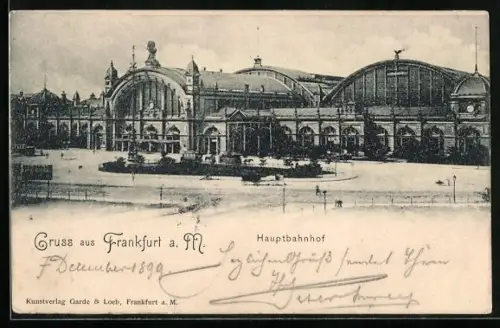 Gruss aus Frankfurt a. M.
Hauptbahnhof
7 December 1899
sendet Ihnen
Kunstverlag Garde & Loeb, Frankfurt a. M.